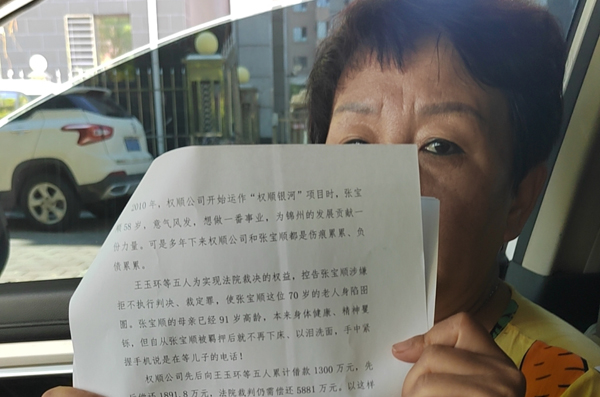 2010年，权顺公司开始运作“权顺银河”项目时，张宝
58岁，意气风发，想做一番事业，为锦州的发展贡献一
份力量。可是多年下来权顺公司和张宝顺都是伤痕累累、负
债累累。
王玉环等五人为实现法院裁决的权益，控告张宝顺涉嫌
拒不执行判决、裁定罪，使张宝顺这位70岁的老人身陷囹
圄。张宝顺的母亲已经91岁高龄，本来身体健康、精神矍
铄，但自从张宝顺被羁押后就不再下床、以泪洗面，手中紧
握手机说是在等儿子的电话！
权顺公司先后向王玉环等五人累计借款1300万元，先
后偿还1891.8万元，法院裁判仍需偿还5881万元，以这样